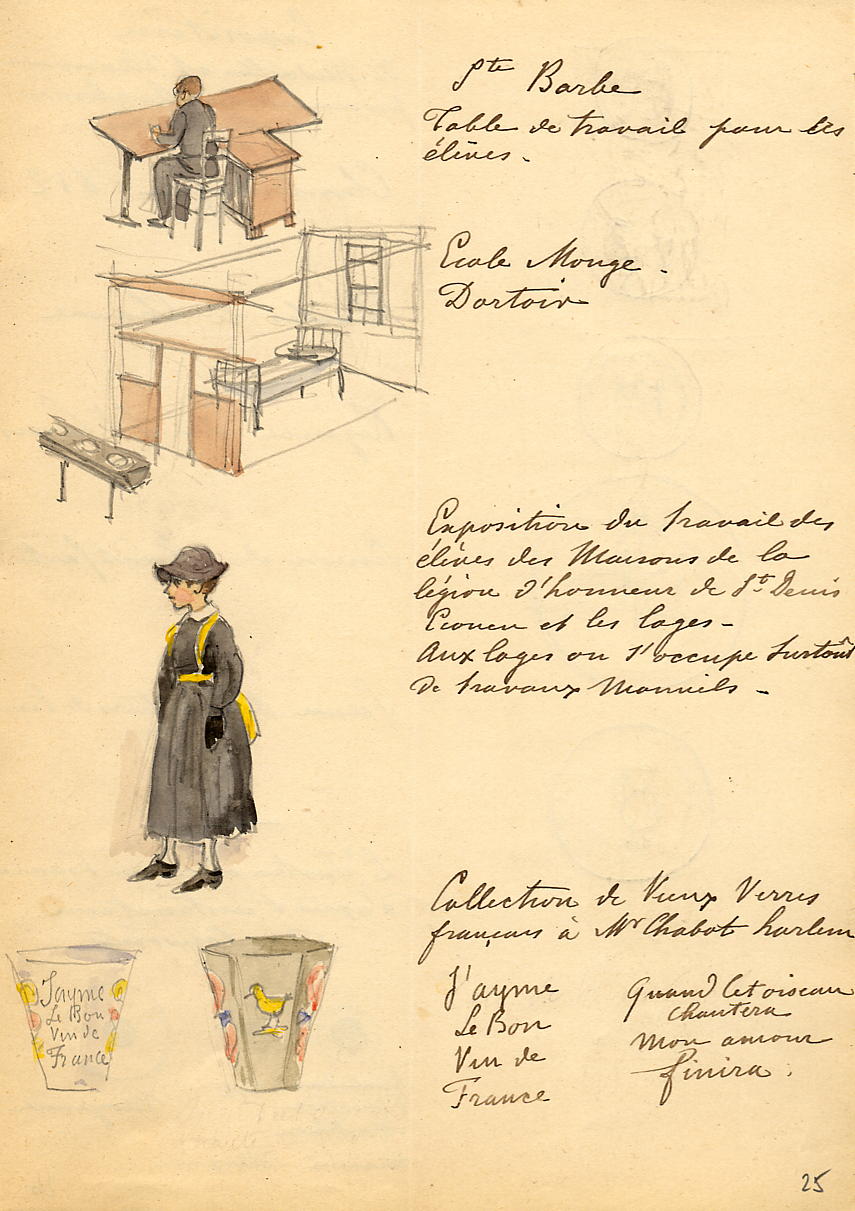 Ste Barbe
Table de travail pour les
élèves.
Ecole Monge.
Dortoir
Exposition du travail des
élèves des Maisons de la
légion d'honneur de St Denis
Ecouen et les loges -
Aux loges on s'occupe surtout
de travaux Manuels -
Collection de Vieux Verres
français à Mr Chabot harlem
J'ayme
Le Bon
Vin de
France
Quand cet oiseau
chantera
mon amour
finira.
Jayme
Le Bon
Vin de
France
25